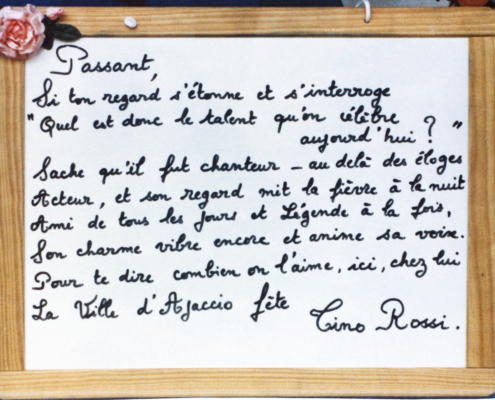 Passant,
Si ton regard s'étonne et s'interroge
"Quel est donc le talent qu'on célèbre
aujourd'hui ? "
Sache qu'il fut chanteur - au delà des éloges
Acteur, et son regard mit la fièvre à la nuit
Ami de tous les Jours et Légende à la fois,
Son charme vibre encore et anime sa voix.
Pour te dire combien on l'aime, ici, chez lui
La Ville d'Ajaccio fête
Tino Rossi.